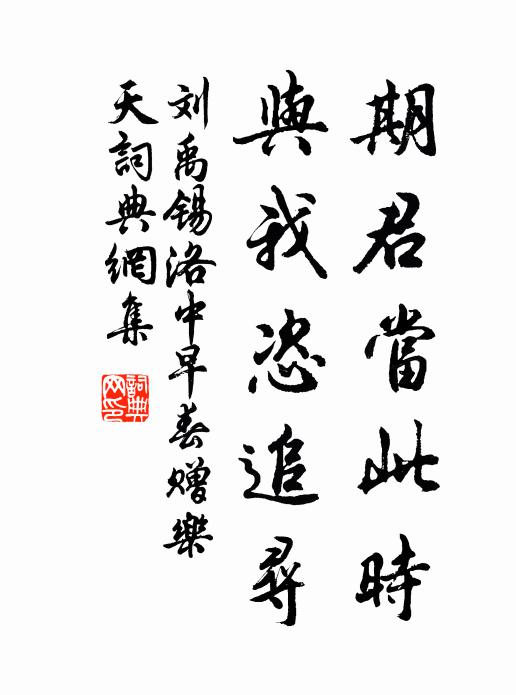 期君當此時
與我恣追尋
刘禹锡洛中早春赠樂
天詞典網集
詞典網印